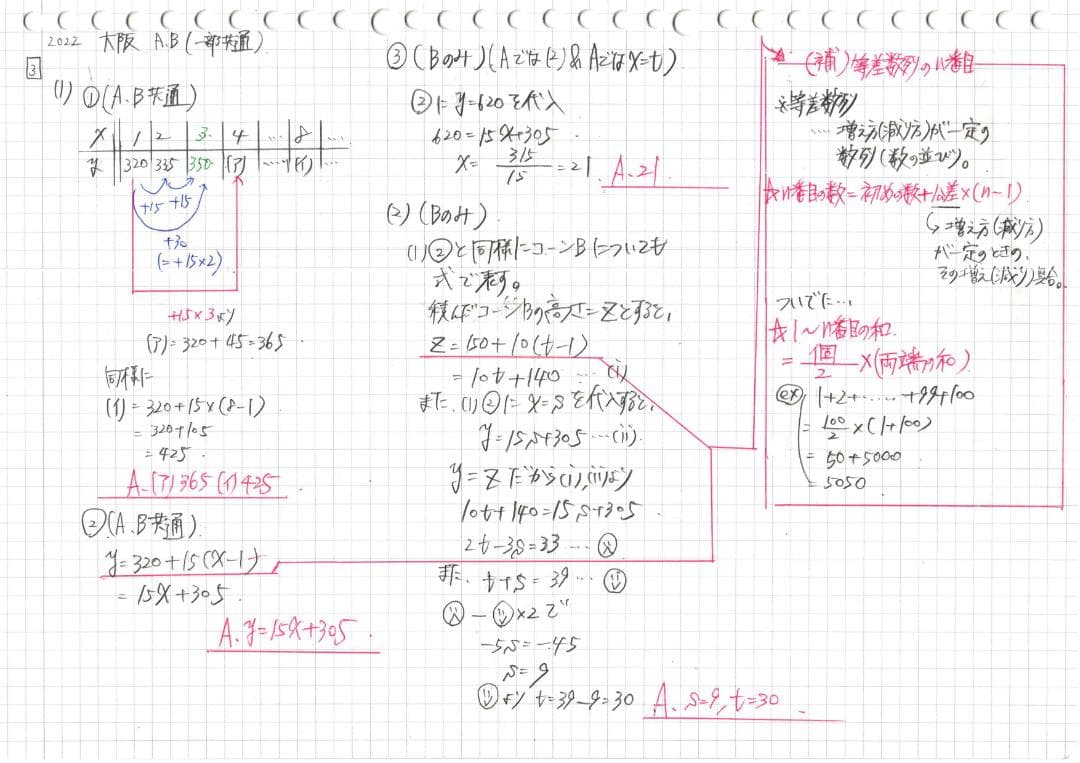 2022 大阪 A.B(一部共通)
3
(1) ①(A、B共通)
x 1 2 3 4 … 8 …
y 320 335 350 (ア) … (イ) …
+15 +15
+30
(=+15×2)
+15×3より
(ア)=320+45=365.
同様に
(イ)=320+15×(8-1)
=320+105
=425.
A.(ア)365(イ)425
②(A、B共通)
y=320+15(x-1)
=15x+305.
A.y=15x+305.
③(Bのみ)(Aでは(2)&Aではx=t)
②にy=620を代入
620=15x+305
x=315/15=21.
A.21
(2)(Bのみ)
(1)②と同様にコーンBについても
式で表す。
積んだコーンBの高さ=zとすると、
z=150+10(t-1)
=10t+140 …(i)
また、(1)②にx=sを代入すると、
y=15s+305…(ii).
y=zだから(i),(ii)より
10t+140=15s+305.
2t-3s=33…
また、t+s=39…
×2で
-5s=-45
s=9
より t=39-9=30
A.s=9,t=30.
(補)等差数列のn番目
※等差数列
…増え方(減り方)が一定の
数列(数の並び)。
☆n番目の数=初めの数+公差×(n-1)
↳増え方(減り方)
が一定のときの、
その増え(減り)具合。
ついでに…
☆1〜n番目の和
=個/2×(両端の和)
ex 1+2+……+99+100
=100/2×(1+100)
=50+5000
=5050.